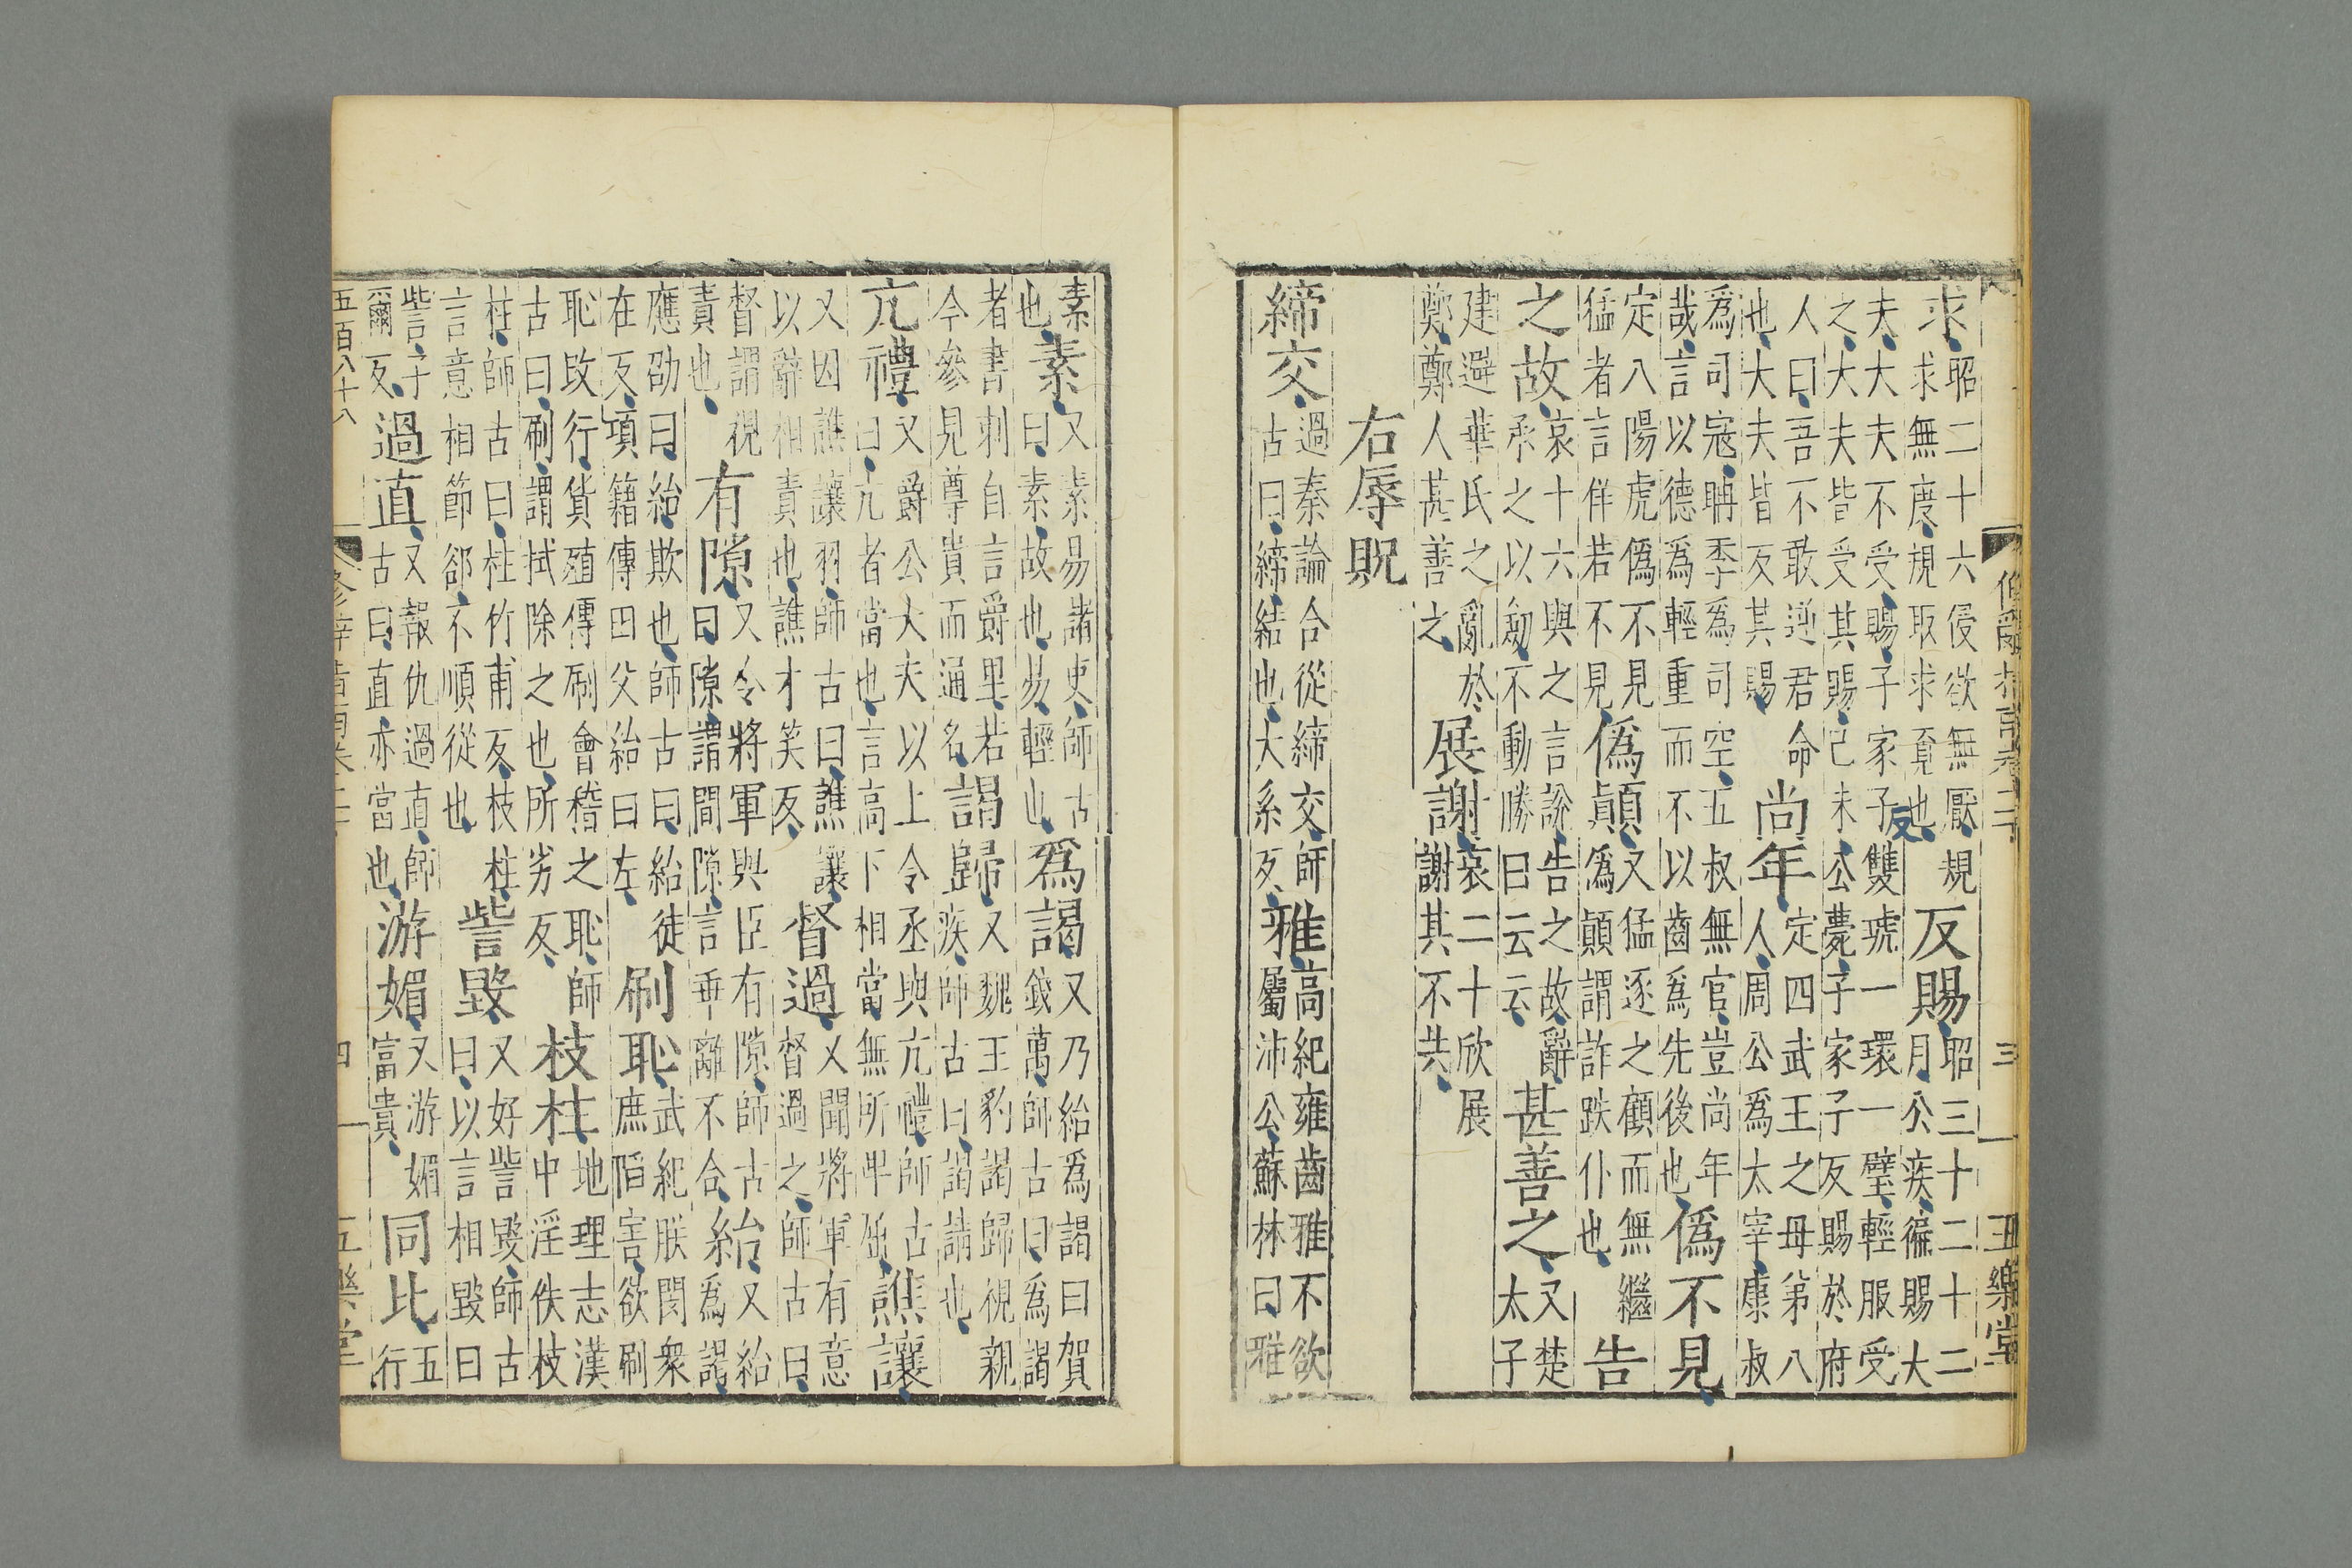 脩辭指南卷二十 三 五樂堂
求昭二十六侵欲無厭規求無度規取求覔也反賜昭三十二十二月公疾徧賜大
夫大夫不受賜子家子雙琥一環一璧輕服受之大夫皆受其賜己未公薨子家子反賜於府
反
人曰吾不敢逆君命也大夫皆反其賜尚年定四武王之母弟八人周公爲太宰康叔
爲司寇聃季爲司空五叔無官豈尚年哉言以德爲輕重而不以齒爲先後也僞不見
定八陽虎僞不見猛者言佯若不見僞顛又猛逐之顧而無繼僞顛謂詐跌仆也告
之故哀十六與之言説告之故辭承之以劒不動勝曰云云甚善之又楚太子
建避華氏之亂於鄭鄭人甚善之展謝哀二十欣展謝其不共
右辱貺
締交過秦論合從締交師古曰締結也大系反雅高紀雍齒雅不欲屬沛公蘇林曰雅
素也素又素易諸吏師古曰素故也易輕也爲謁又乃紿爲謁曰賀錢萬師古曰爲謁
者書刺自言爵里若今參見尊貴而通名謁歸又魏王豹謁歸視親疾師古曰謁請也
亢禮又爵公大夫以上令丞與亢禮師古曰亢者當也言高下相當無所卑屈譙讓
又因譙讓羽師古曰譙讓以辭相責也譙才笑反督過又聞將軍有意督過之師古曰
督謂視責也有隙又令將軍與臣有隙師古曰隙謂間隙言乖離不合紿又紿爲謁
應劭曰紿欺也師古曰紿徒在反項籍傳田父紿曰左刷恥武紀朕閔衆庶陷害欲刷
恥改行貨殖傳刷會稽之恥師古曰刷謂拭除之也所劣反枝柱地理志漢中淫佚枝
柱師古曰柱竹甫反枝柱言意相節郤不順從也訾毀又好訾毀師古曰以言相毀曰
訾子爾反過直又報仇過直師古曰直亦當也游媚又游媚富貴同比五行
五百八十八 四 五樂堂